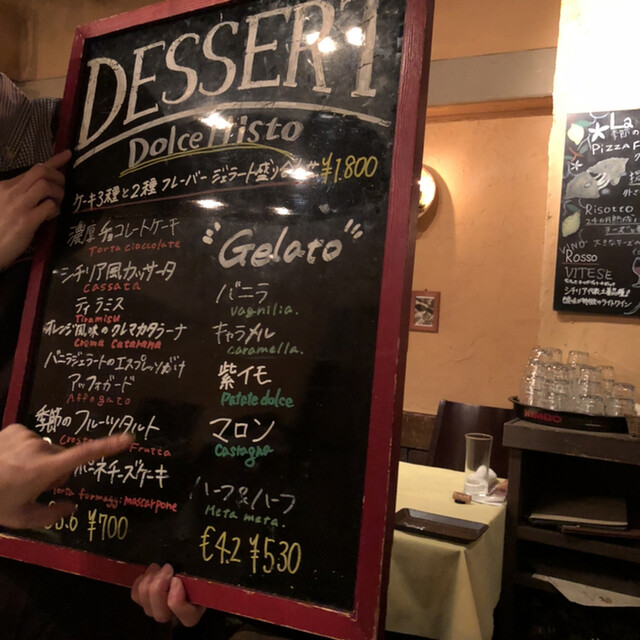 DESSERT
Dolce Misto
ケーキ3種と2種フレーバージェラート盛り合わせ ¥1.800
濃厚チョコレートケーキ
Torta cioccolate
シチリア風カッサータ
Cassata
ティラミス
Tiramisu
オレンジ風味のクレマカタラーナ
Crema Catarana
バニラジェラートのエスプレッソがけ
アッフォガード
Affogato
季節のフルーツタルト
Frutta
ネチーズケーキ
formaggi: mascarpone
¥700
"Gelato"
バニラ
Vagnilia.
キャラメル
caramella.
紫イモ
Patate dolce
マロン
Castagna
ハーフ&ハーフ
Meta meta.
€4.2 ¥530
La
PIZZA F
Risotto
VINO
ROSSO
VITESE